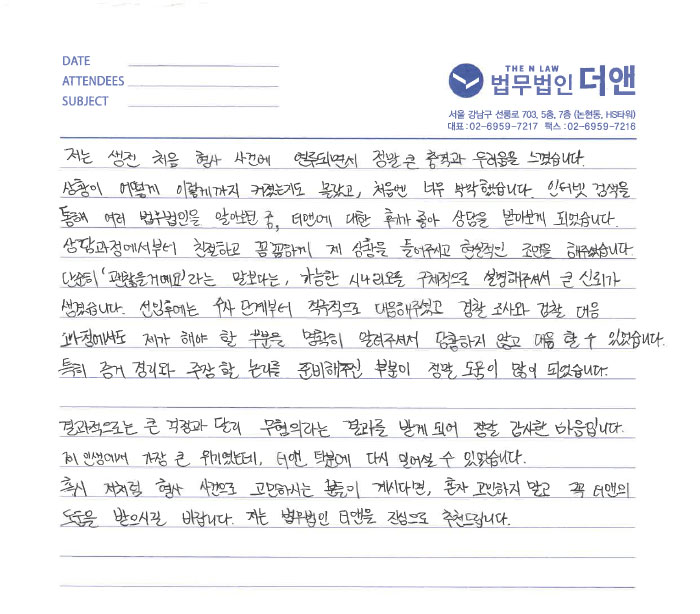 DATE
ATTENDEES
SUBJECT
THE N LAW
법무법인 더앤
서울 강남구 선릉로 703, 5층, 7층 (논현동, HS타워)
대표 : 02-6959-7217 팩스 : 02-6959-7216
저는 생전 처음 형사 사건에 연루되면서 정말 큰 충격과 두려움을 느꼈습니다.
상황이 어떻게 이렇게까지 커졌는지도 몰랐고, 처음엔 너무 막막했습니다. 인터넷 검색을
통해 여러 법무법인을 알아보던 중, 더앤에 대한 후기가 좋아 상담을 받아보게 되었습니다.
상담과정에서부터 친절하고 꼼꼼하게 제 상황을 들어주시고 현실적인 조언을 해주셨습니다.
단순히 '괜찮을거예요'라는 말보다는, 가능한 시나리오를 구체적으로 설명해주셔서 큰 신뢰가
생겼습니다. 선임후에는 수사 단계부터 적극적으로 대응해주셨고 경찰 조사와 검찰 대응
과정에서도 제가 해야 할 부분을 명확히 알려주셔서 당황하지 않고 대응 할 수 있었습니다.
특히 증거 정리와 주장 할 논리를 준비해주신 부분이 정말 도움이 많이 되었습니다.
결과적으로는 큰 걱정과 달리 무혐의라는 결과를 받게 되어 정말 감사한 마음입니다.
제 인생에서 가장 큰 위기였는데, 더앤 덕분에 다시 일어설 수 있었습니다.
혹시 저처럼 형사 사건으로 고민하시는 분들이 계시다면, 혼자 고민하지 말고 꼭 더앤의
도움을 받으시길 바랍니다. 저는 법무법인 더앤을 진심으로 추천드립니다.